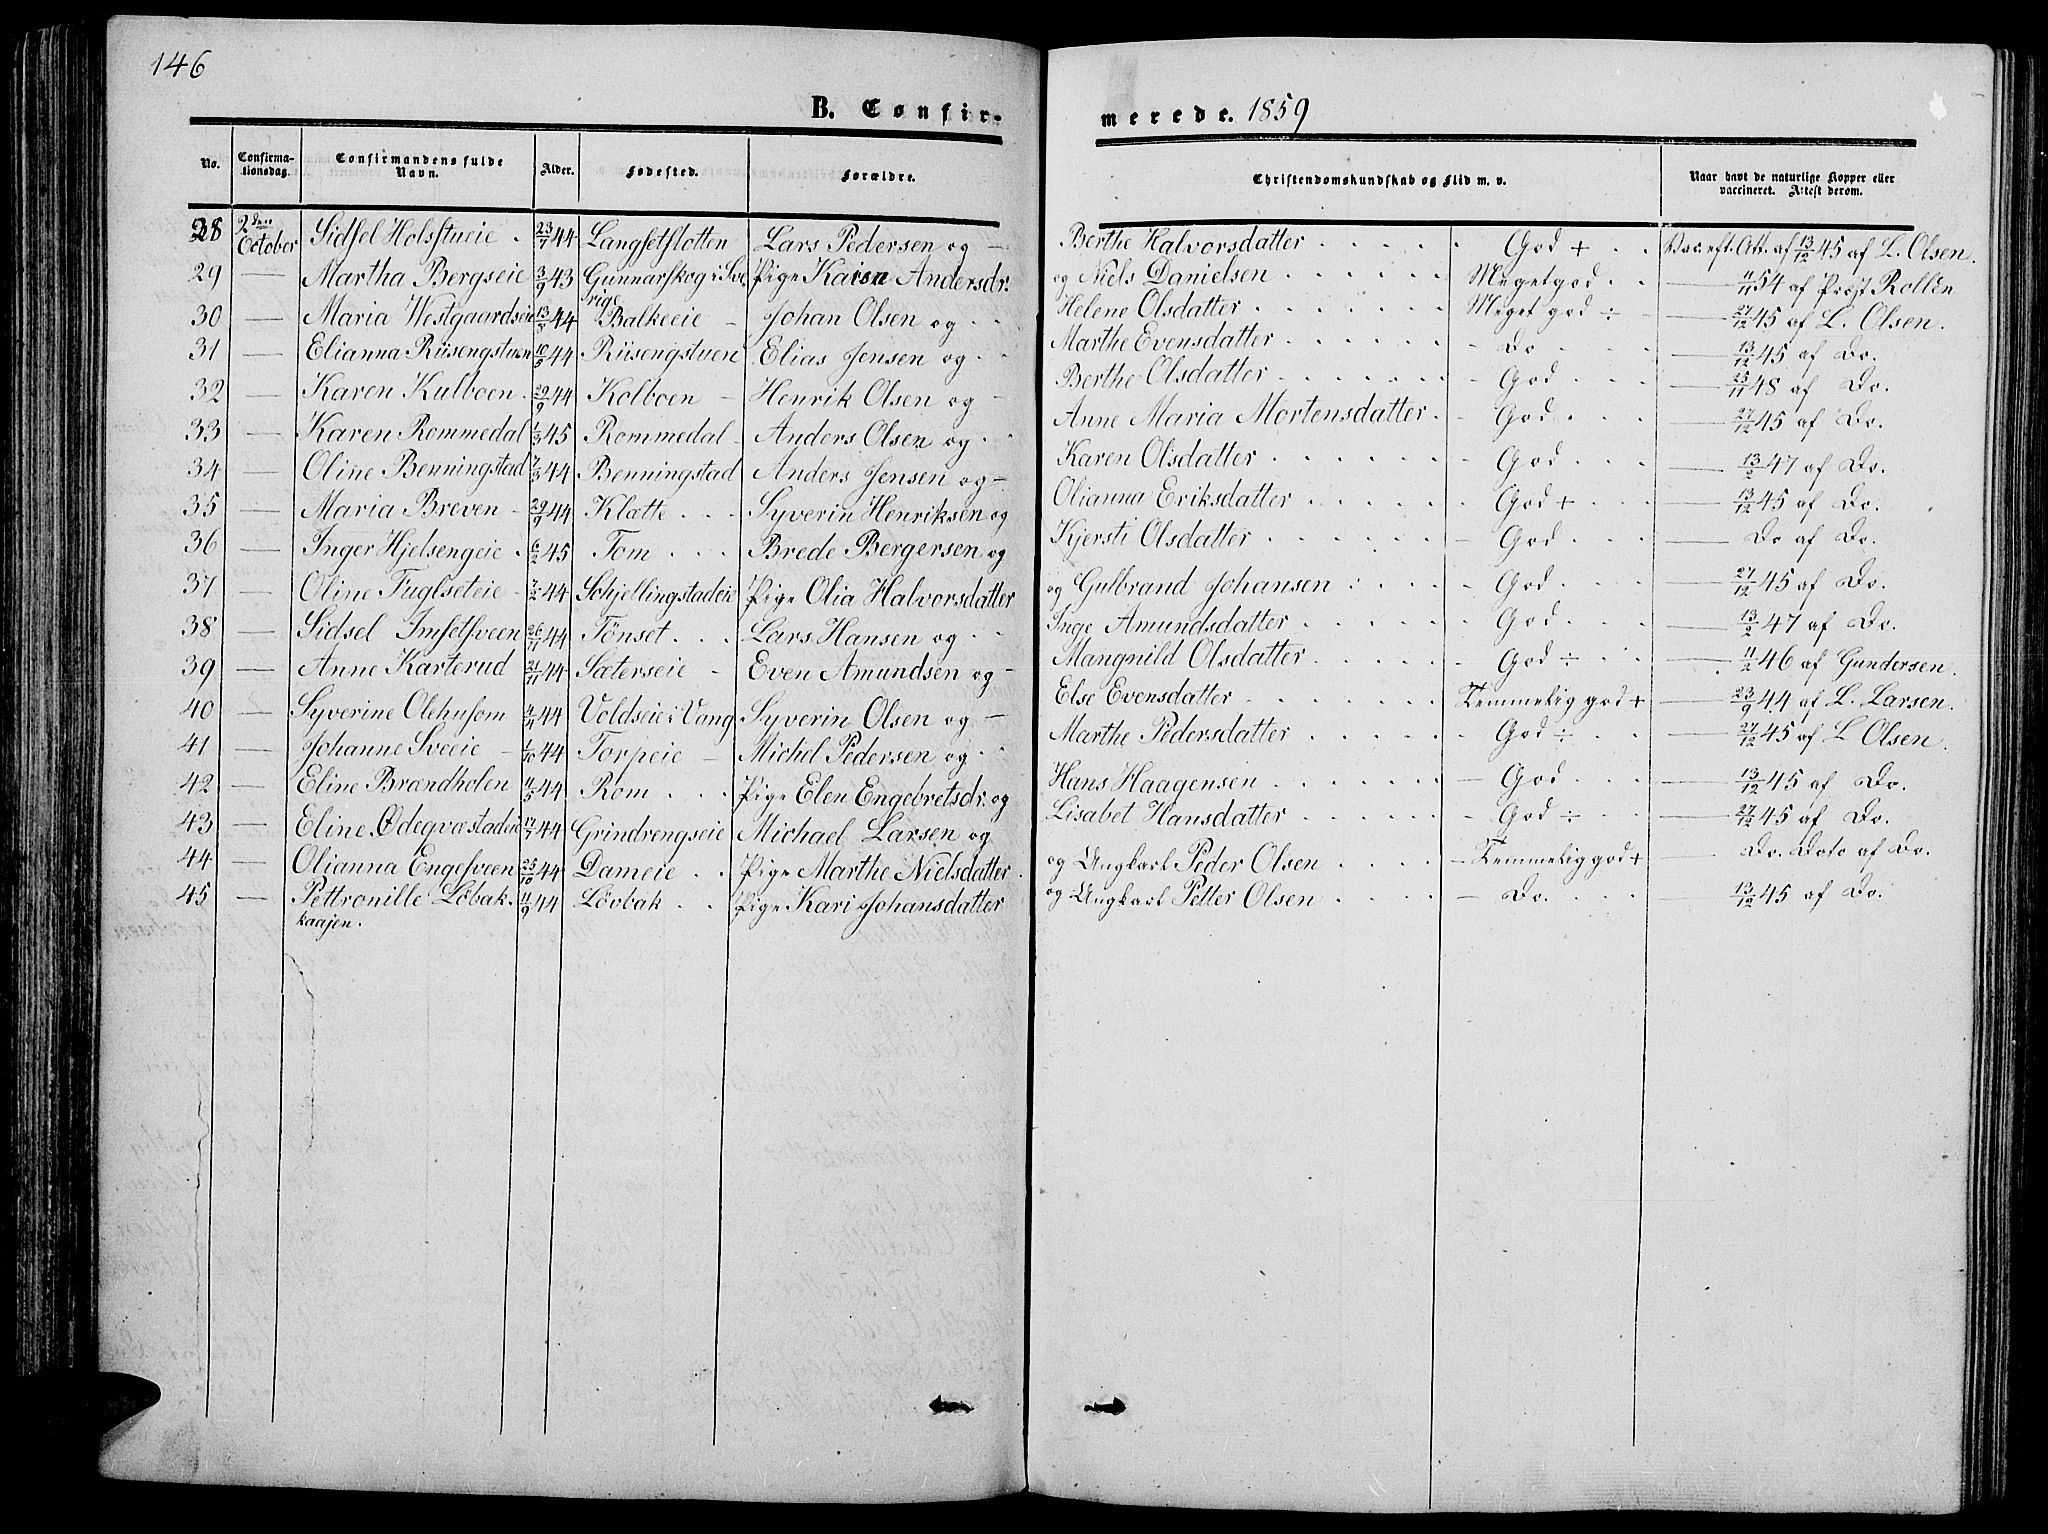 146
B. Confir- merede. 1859
No. Confirma-tionsdag. Confirmandens fulde Navn. Alder. Fødested. Forældre. Christendomskundskab og Flid m. v. Naar havt de naturlige Kopper eller vaccineret. Attest derom.
28 2den October Sidsel Holsstueie 23/7 44 Langsetslotten Lars Pedersen og - Berthe Halvorsdatter God + Vac. eft. Att. af 13/12 45 af L. Olsen.
29 — Martha Bergseie 3/9 43 Gunnarskog i Sverige Pige Karen Andersdr. og Niels Danielsen Meget god — 11/11 54 af Prost Rollèn
30 — Maria Westgaardseie 13/5 44 Balkeeie - Johan Olsen og Helene Olsdatter Meget god ÷ — 27/12 45 af L. Olsen.
31 — Elianna Riisengstuen 10/5 44 Riisengstuen Elias Jensen og Marthe Evensdatter - Do — 13/12 45 af Do.
32 — Karen Kulboen 29/9 44 Kolboen - Henrik Olsen og - Berthe Olsdatter - God — 25/11 48 af Do.
33 — Karen Rommedal 1/3 45 Rommedal - Anders Olsen og Anne Maria Mortensdatter - God — 27/12 45 af Do.
34 — Oline Benningstad 7/3 44 Benningstad Anders Jensen og - Karen Olsdatter - God — 13/2 47 af Do.
35 — Maria Breven - 29/9 44 Klætte Syverin Henriksen og Olianna Eriksdatter - God + — 13/12 45 af Do.
36 — Inger Hjelsengeie 6/2 45 Tom Brede Bergersen og Kjersti Olsdatter - God — Do af Do.
37 — Oline Fuglseteie - 7/2 44 Schjellingstadeie Pige Olia Halvorsdatter og Gulbrand Johansen - God — 27/12 45 af Do.
38 — Sidsel Imsetsveen 26/11 44 Tönset Lars Hansen og Inge Amundsdatter - God — 13/2 47 af Do.
39 — Anne Karterud 21/11 44 Sæterseie - Even Amundsen og - Mangnild Olsdatter - God ÷ — 11/2 46 af Gundersen.
40 — Syverine Olehusom 4/4 44 Voldseie i Vang Syverin Olsen og - Else Evensdatter Temmelig god + — 23/9 44 af L. Larsen.
41 — Johanne Sveeie - 1/10 44 Torpeie - Michel Pedersen og Marthe Pedersdatter - God ÷ — 27/12 45 af L Olsen.
42 — Eline Brændholen 11/5 44 Rom Pige Elen Engebretsdr. og Hans Haagensen - God — 13/12 45 af Do.
43 — Eline Ødegvæstadeie 17/7 44 Grindrengseie Michael Larsen og Lisabet Hansdatter - God ÷ — 27/12 45 af Do.
44 — Olianna Engesveen 25/10 44 Dameie Pige Marthe Nielsdatter og Ungkarl Peder Olsen - Temmelig god + — Do. Dato af Do.
45 — Pettronille Löbakkaajen. 11/9 44 Lövbak Pige Kari Johansdatter og Ungkarl Petter Olsen - Do. — 13/12 45 af Do.